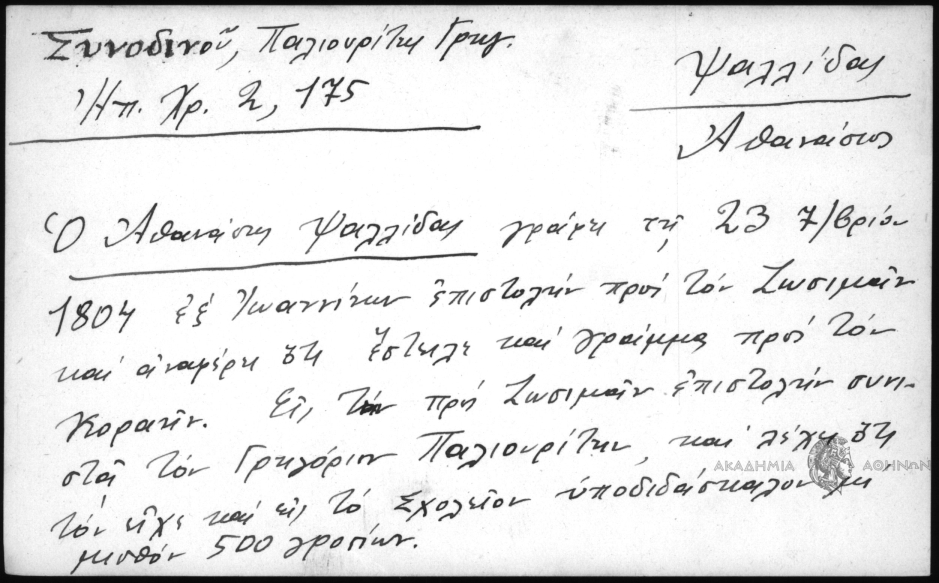 Συνοδινοῦ, Παλιουρίτης Γρηγ.
Ἠπ. Χρ. 2, 175
Ψαλλίδας
Ἀθανάσιος
Ὁ Ἀθανάσιος Ψαλλίδας γράφει τῇ 23 7/βρίου
1804 ἐξ Ἰωαννίνων ἐπιστολήν πρός τόν Ζωσιμᾶν
καί ἀναφέρει ὅτι ἔστειλε καί γράμμα πρός τόν
Κοραῆν. Εἰς τήν πρός Ζωσιμᾶν ἐπιστολήν συνι-
στᾶ τόν Γρηγόριον Παλιουρίτην, καί λέγει ὅτι
τόν εἶχε καί εἰς τό Σχολεῖον ὑποδιδάσκαλον μέ
μισθόν 500 γροσίων.
ΑΚΑΔΗΜΙΑ ΑΘΗΝΩΝ